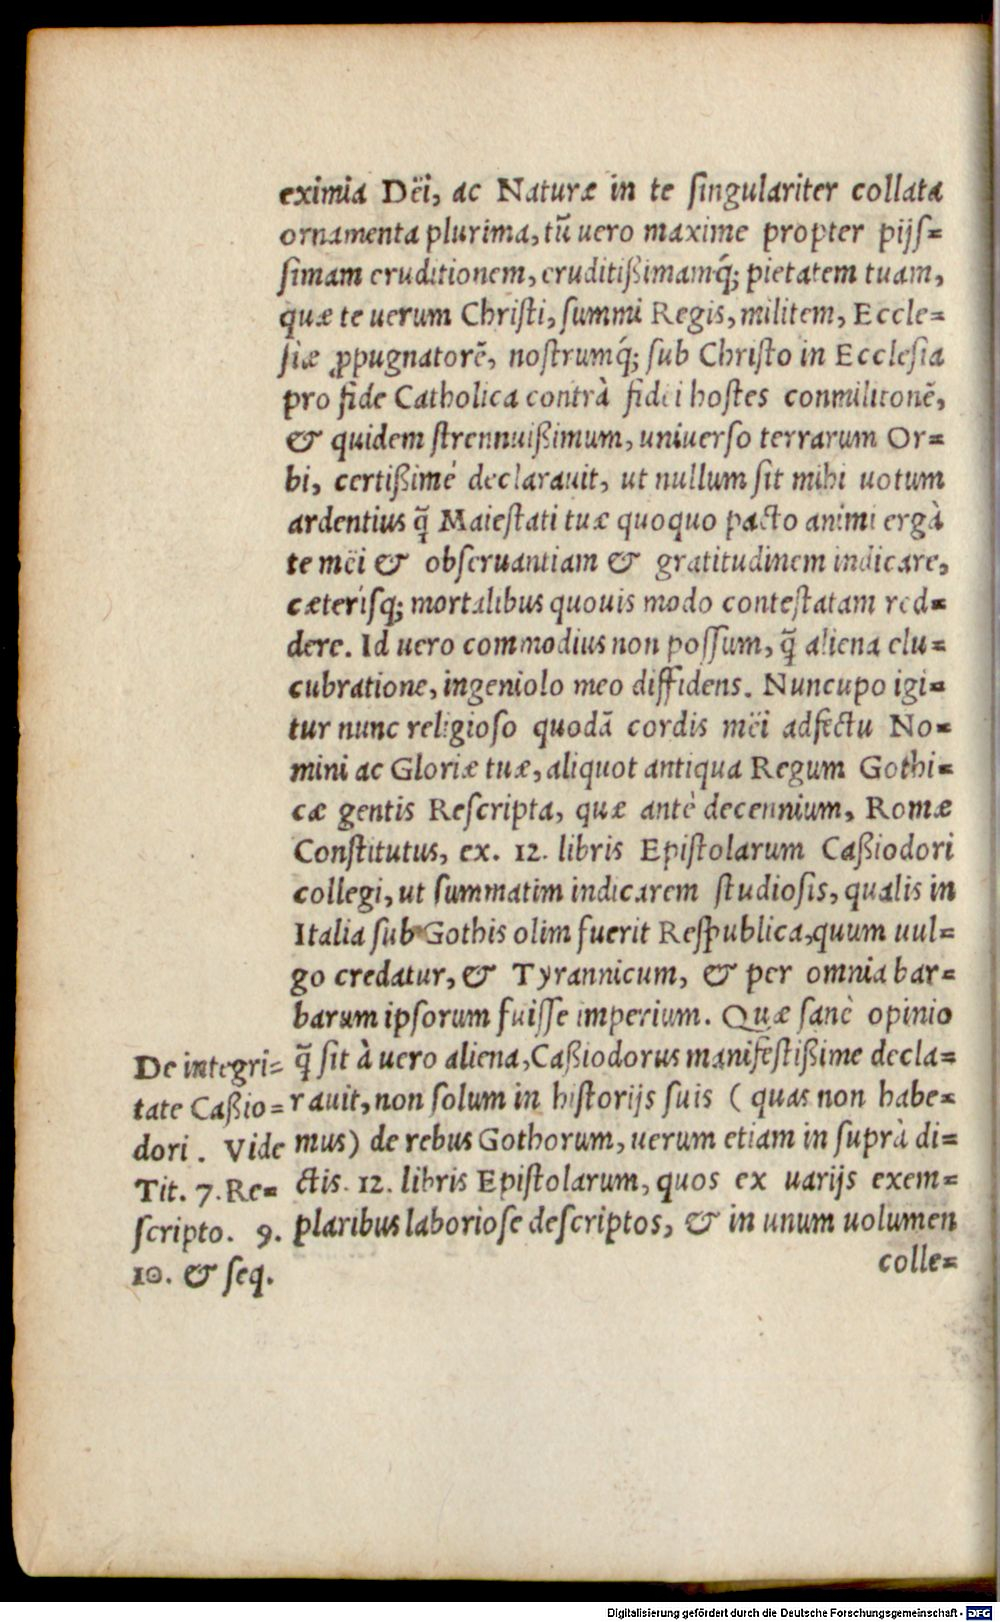 eximia Dëi, ac Naturæ in te ſingulariter collata
ornamenta plurima, tũ uero maxime propter pijſ=
ſimam eruditionem, eruditißimamq́; pietatem tuam,
quæ te uerum Chriſti, ſummi Regis, militem, Eccle=
ſiæ ꝓpugnatorẽ, noſtrumq́; ſub Chriſto in Eccleſia
pro fide Catholica contrà fidei hoſtes conmilitonẽ,
& quidem ſtrennuißimum, uniuerſo terrarum Or=
bi, certißimè declarauit, ut nullum ſit mihi uotum
ardentius q̃ Maieſtati tuæ quoquo pacto animi ergà
te mëi & obſeruantiam & gratitudinem indicare,
cæteriſq; mortalibus quouis modo conteſtatam red=
dere. Id uero commodius non poſſum, q̃ aliena elu=
cubratione, ingeniolo meo diffidens. Nuncupo igi=
tur nunc religioſo quodã cordis mëi adfectu No=
mini ac Gloriæ tuæ, aliquot antiqua Regum Gothi=
cæ gentis Reſcripta, quæ antè decennium, Romæ
Conſtitutus, ex. 12. libris Epiſtolarum Caßiodori
collegi, ut ſummatim indicarem ſtudioſis, qualis in
Italia ſub Gothis olim fuerit Reſpublica, quum uul=
go credatur, & Tyrannicum, & per omnia bar=
barum ipſorum fuiſſe imperium. Quæ ſanè opinio
q̃ ſit à uero aliena, Caßiodorus manifeſtißime decla=
rauit, non ſolum in hiſtorijs ſuis ( quas non habe=
mus) de rebus Gothorum, uerum etiam in ſuprà di=
ctis. 12. libris Epiſtolarum, quos ex uarijs exem=
plaribus laborioſe deſcriptos, & in unum uolumen
colle=
De integri=
tate Caßio=
dori . Vide
Tit. 7. Re=
ſcripto. 9.
10. & ſeq.
Digitalisierung gefördert durch die Deutsche Forschungsgemeinschaft - DFG